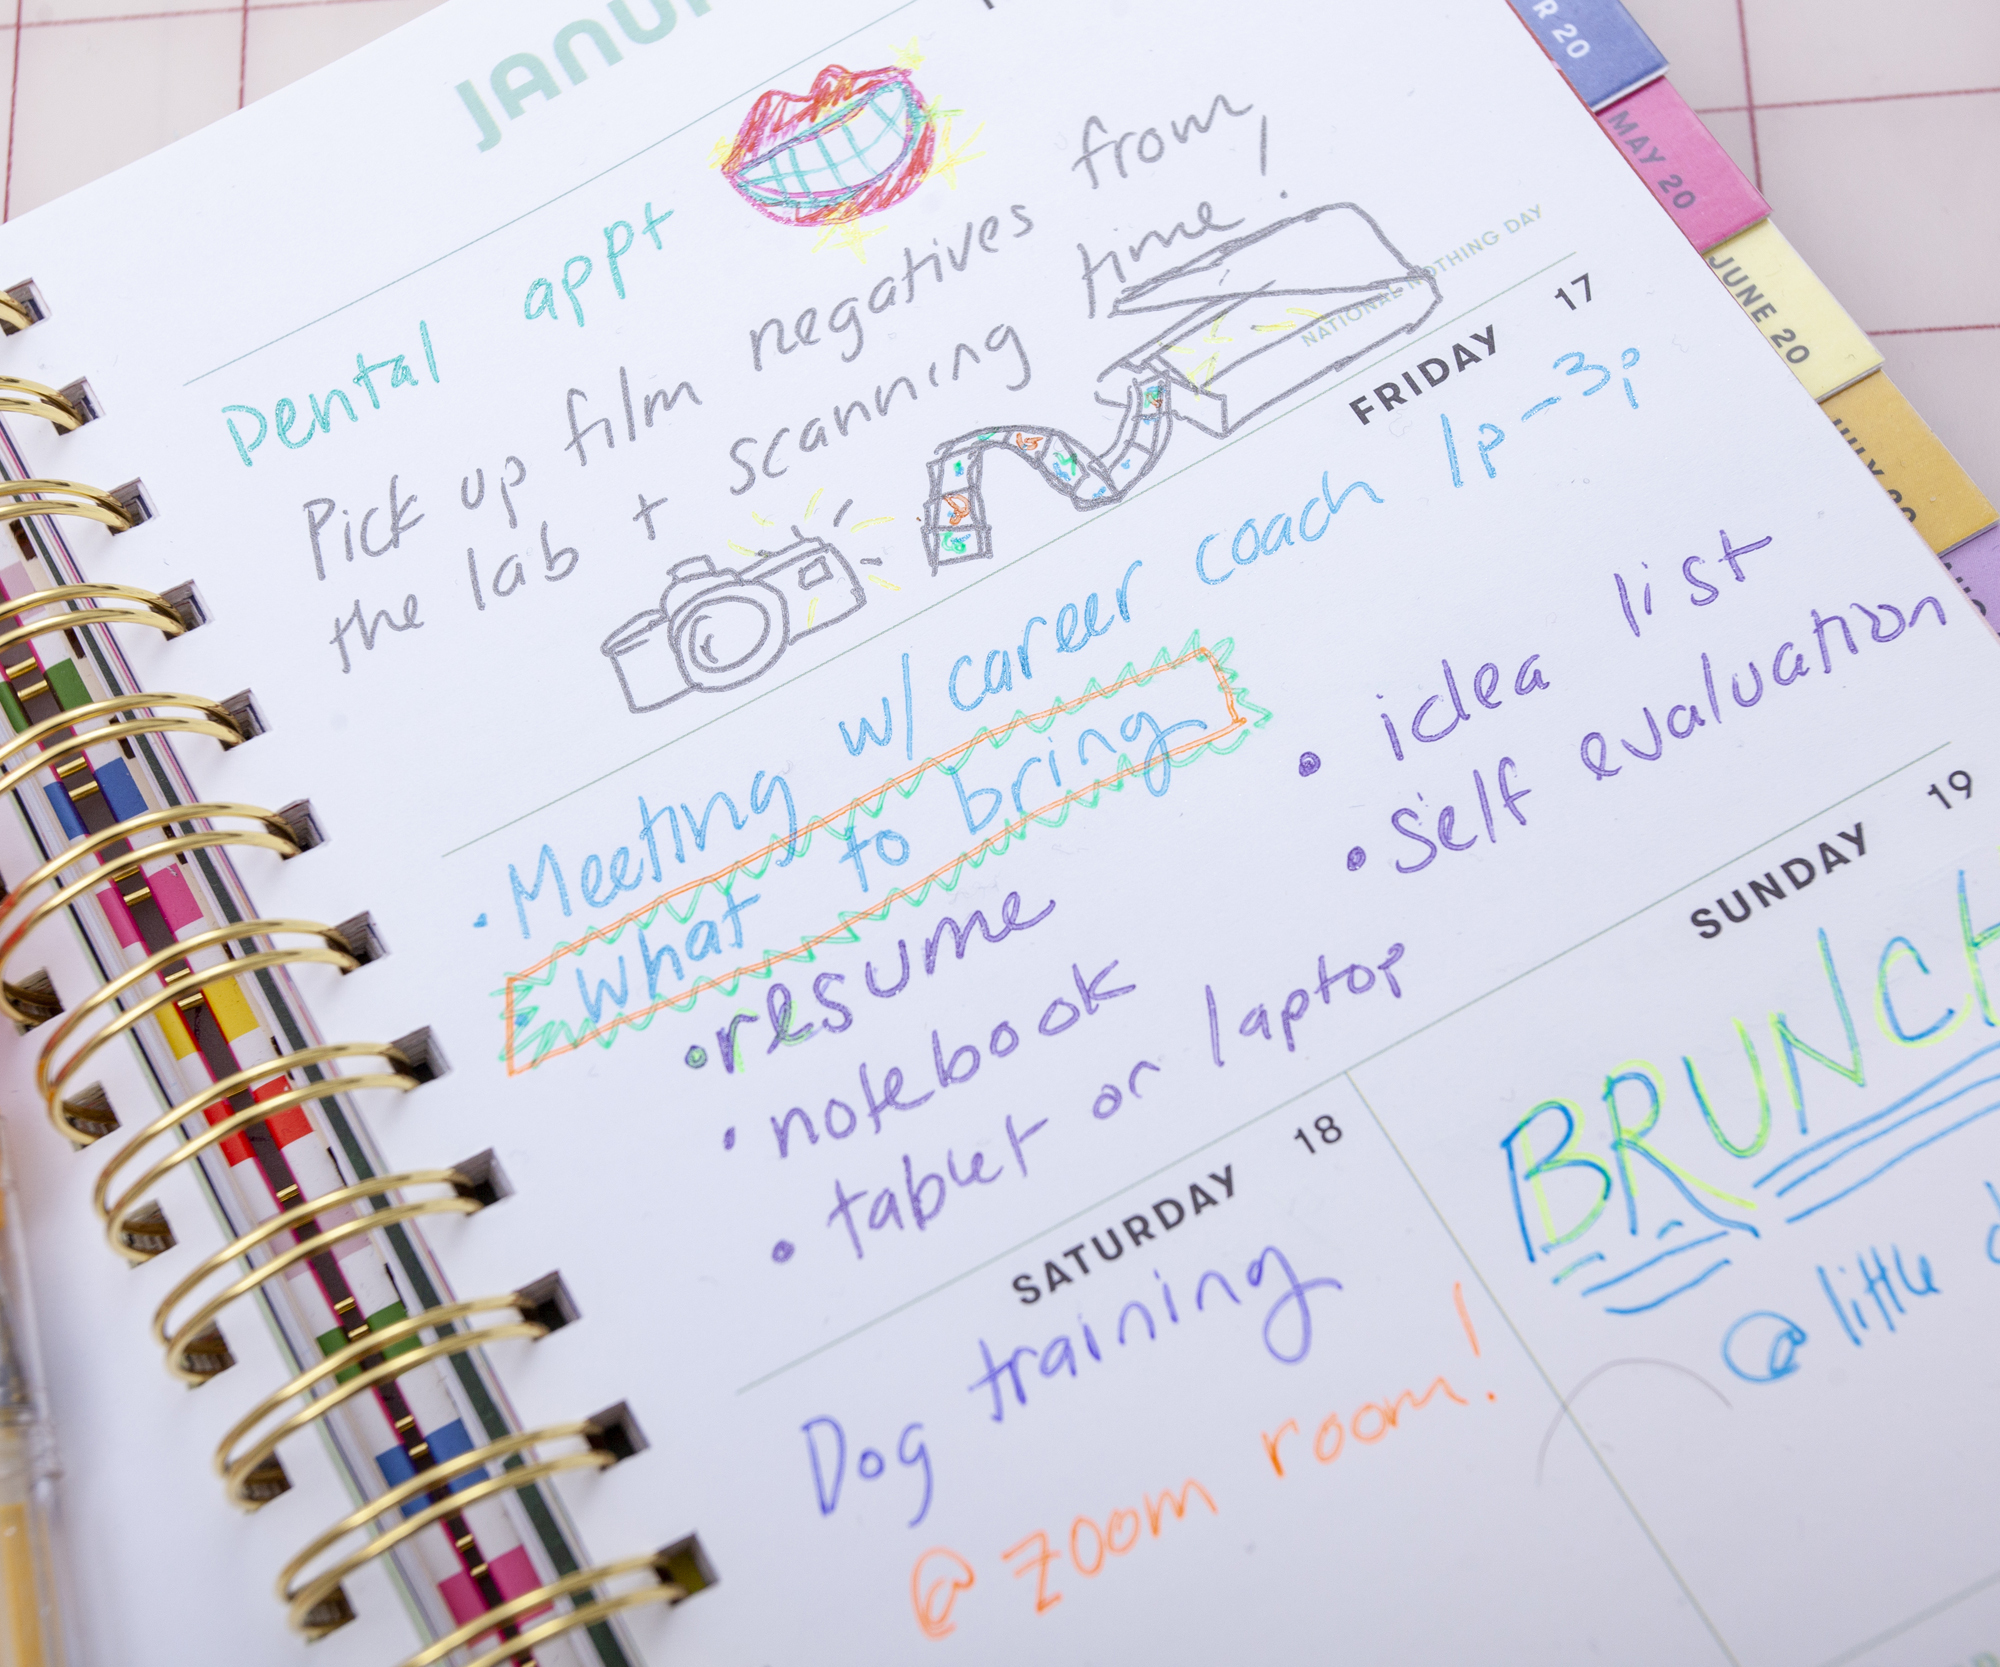 JANU
Dental appt
Pick up film negatives from
the lab + scanning time!
NATIONAL NOTHING DAY
FRIDAY 17
• Meeting w/ career coach 1p-3p
• what to bring
• resume
• notebook
• tablet or laptop
• idea list
• self evaluation
SATURDAY 18
Dog training
@ zoom room!
SUNDAY 19
BRUNCH
@ little
R 20
MAY 20
JUNE 20
JULY